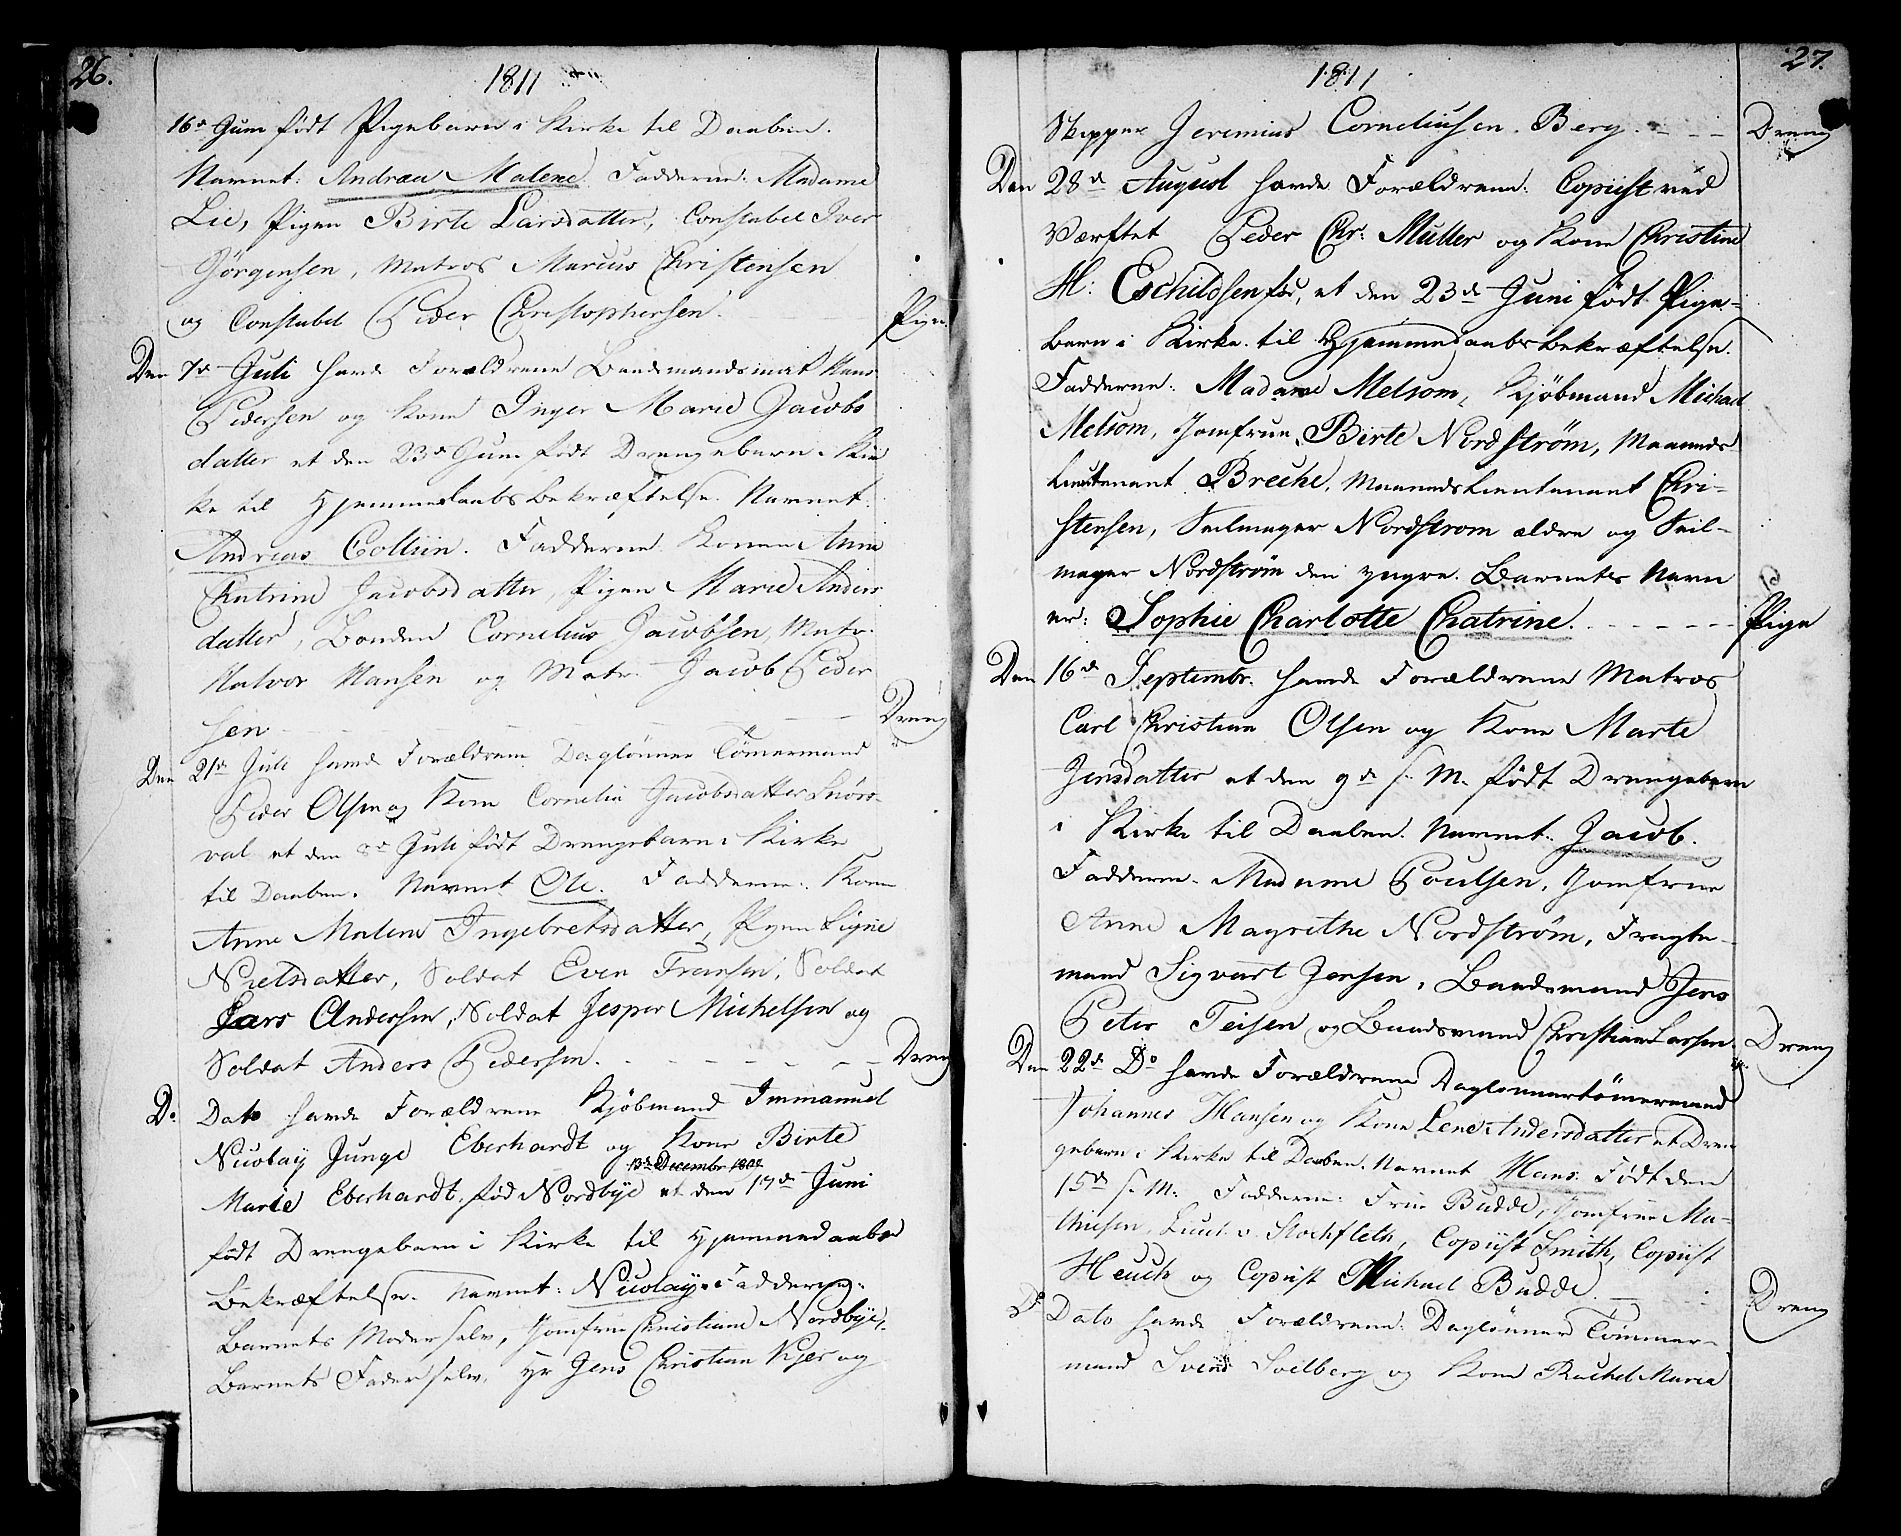 26.
1811
16de Juni födt Pigebarn i Kirke til Daaben.
Navnet: Andrea Malene. Fadderne: Madame
Lie, Pigen Birte Larsdatter, Constabel Iver
Jörgensen, Matros Marcus Christensen
og Constabel Peder Christophersen. Pige
Den 7de Juli havde Forældrene Baadsmandsmat Hans
Pedersen og Kone Inger Marie Jacobs
datter et den 23de Juni födt Drengebarn i Kir
ke til Hjemmedaabs Bekræftelse. Navnet:
Andreas Collin. Fadderne: Konen Anne
Chatrine Jacobsdatter, Pigen Marie Anders
datter, Bonden Cornelius Jacobsen, Matr.
Halvor Hansen og Matr. Jacob Peder
sen Dreng
Den 21de Juli havde Forældrene Daglönner Tömermand
Peder Olsen og Kone Cornelia Jacobsdatter Snörs-
val et den 8de Juli födt Drengebarn i Kirke
til Daaben. Navnet Ole. Fadderne: Kone
Anne Malene Ingebretsdatter, Pigen Signe
Nielsdatter, Soldat Even Fransen, Soldat
Lars Andersen, Soldat Jesper Michelsen og
Soldat Anders Pedersen. Dreng
Do Dato havde Forældrene Kjöbmand Immanuel
Nicolay Junge Eberhardt og Kone Birte
13de Decembr 180
Marie Eberhardt, föd Nordbye et den 17de Juni
födt Drengebarn i Kirke til Hjemmedaabs
Bekræftelse. Navnet: Nicolay. Fadderne:
Barnets Moder selv, Jomfru Christiane Nordbye,
Barnets Fader selv, Hr Jens Christian Kjer og
27.
1811
Skipper Jeremias Corneliussen Berg. Dreng
Den 28de August havde Forældrene: Copiist ved
Værftet Peder Chr: Müller og Kone Christine
H: Eschildsen fÿ, et den 23de Juni födt Pige-
barn i Kirke til Hjemmedaabs Bekræftelse.
Fadderne: Madame Melsom, Kjöbmand Michael
Melsom, Jomfrue Birte Nordström, Maaneds
Lieutenant Breche, Maanedslieutenant Chri-
stensen, Seilmager Nordstrom ældre og Seil-
mager Nordström den yngre. Barnets Navn
er: Sophie Charlotte Chatrine. Pige
Den 16de Septembr. havde Forældrene Matros
Carl Christian Olsen og Kone Marte
Jensdatter et den 9de s. M. födt Drengebarn
i Kirke til Daaben. Navnet: Jacob.
Fadderne. Madame Poulsen, Jomfrue
Anne Magrethe Nordström, Fragte-
mand Sigvart Jensen, Baadsmand Jens
Peter Teisen og Baadsmand Christian Larsen. Dreng
Den 22de Do havde Forældrene Daglönnertömermand
Johannes Hansen og Kone Lene Andersdatter et Dren
gebarn i Kirke til Daaben. Navnet Hans. Födt den
15de s. M. Fadderne: Frue Budde, Jomfrue Ma-
thiesen, Lieut. v. Stochfleth, Copiist Smith, Copiist
Heuch og Copiist Michael Budde. Dreng
Do Dato havde Forældrene: Daglönner Tömmer-
mand Svend Solberg og Kone Rachel Maria